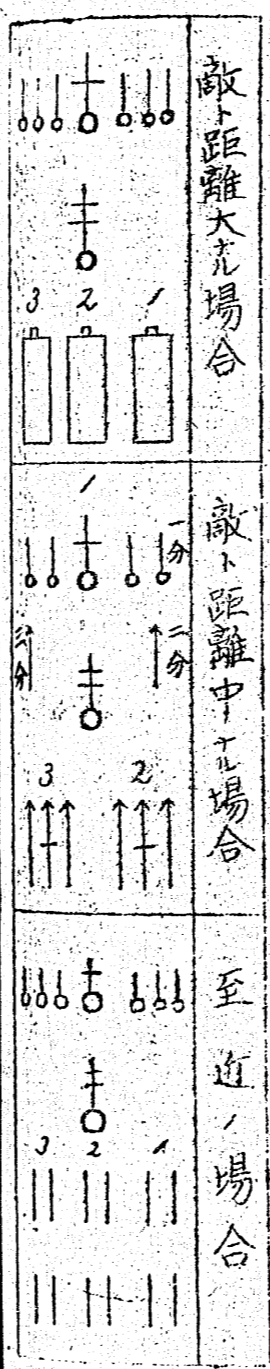 敵ト距離大ナル場合
3 2 1
敵ト距離中ナル場合
1
一分
二分
三分
3 2
至近ノ場合
3 2 1